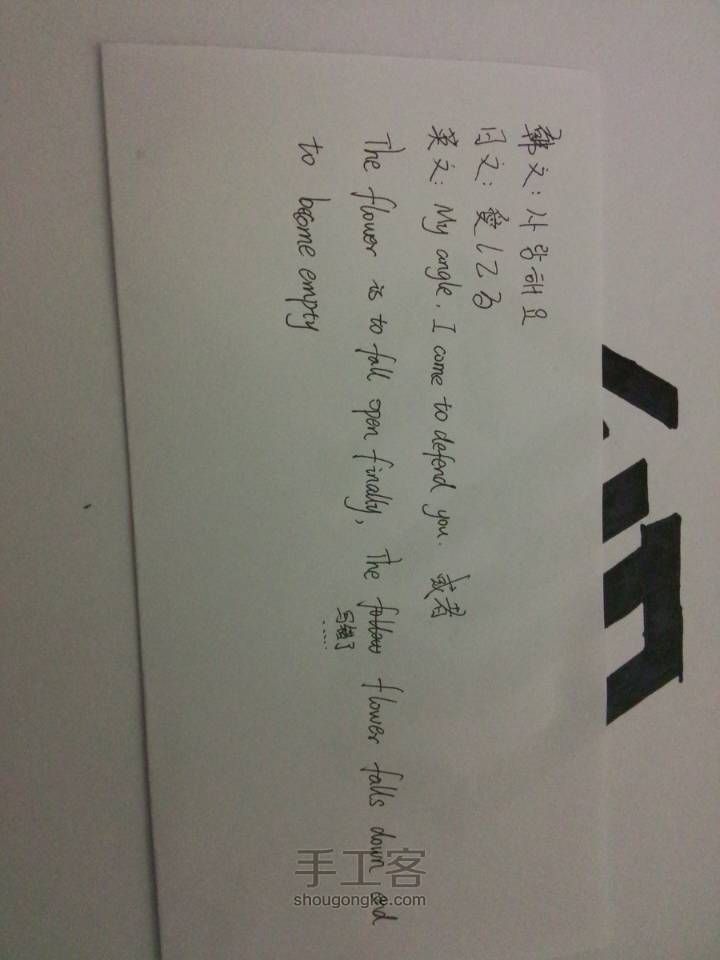 韩文: 사랑해요
日文: 愛してる
英文: My angle. I come to defend you. 或者
The flower is to fall open finally, the follow flower falls down and
写错了……
to become empty
手工客
shougongke.com